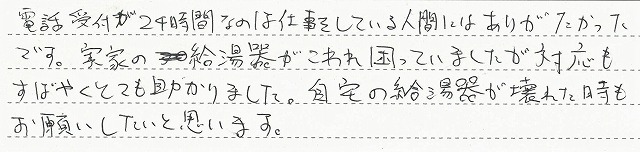 電話受付が24時間なのは仕事をしている人間にはありがたかった
です。実家の給湯器がこわれ困っていましたが対応も
すばやくとても助かりました。自宅の給湯器が壊れた時も
お願いしたいと思います。